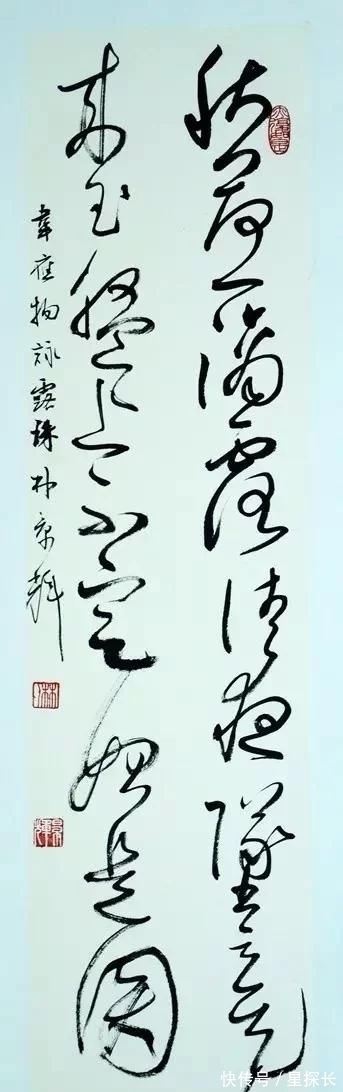 秋荷一滴露清夜墜玄天
来玉盤上不定始是圓
韋應物詠露珠 林景輝
快传号/星探长